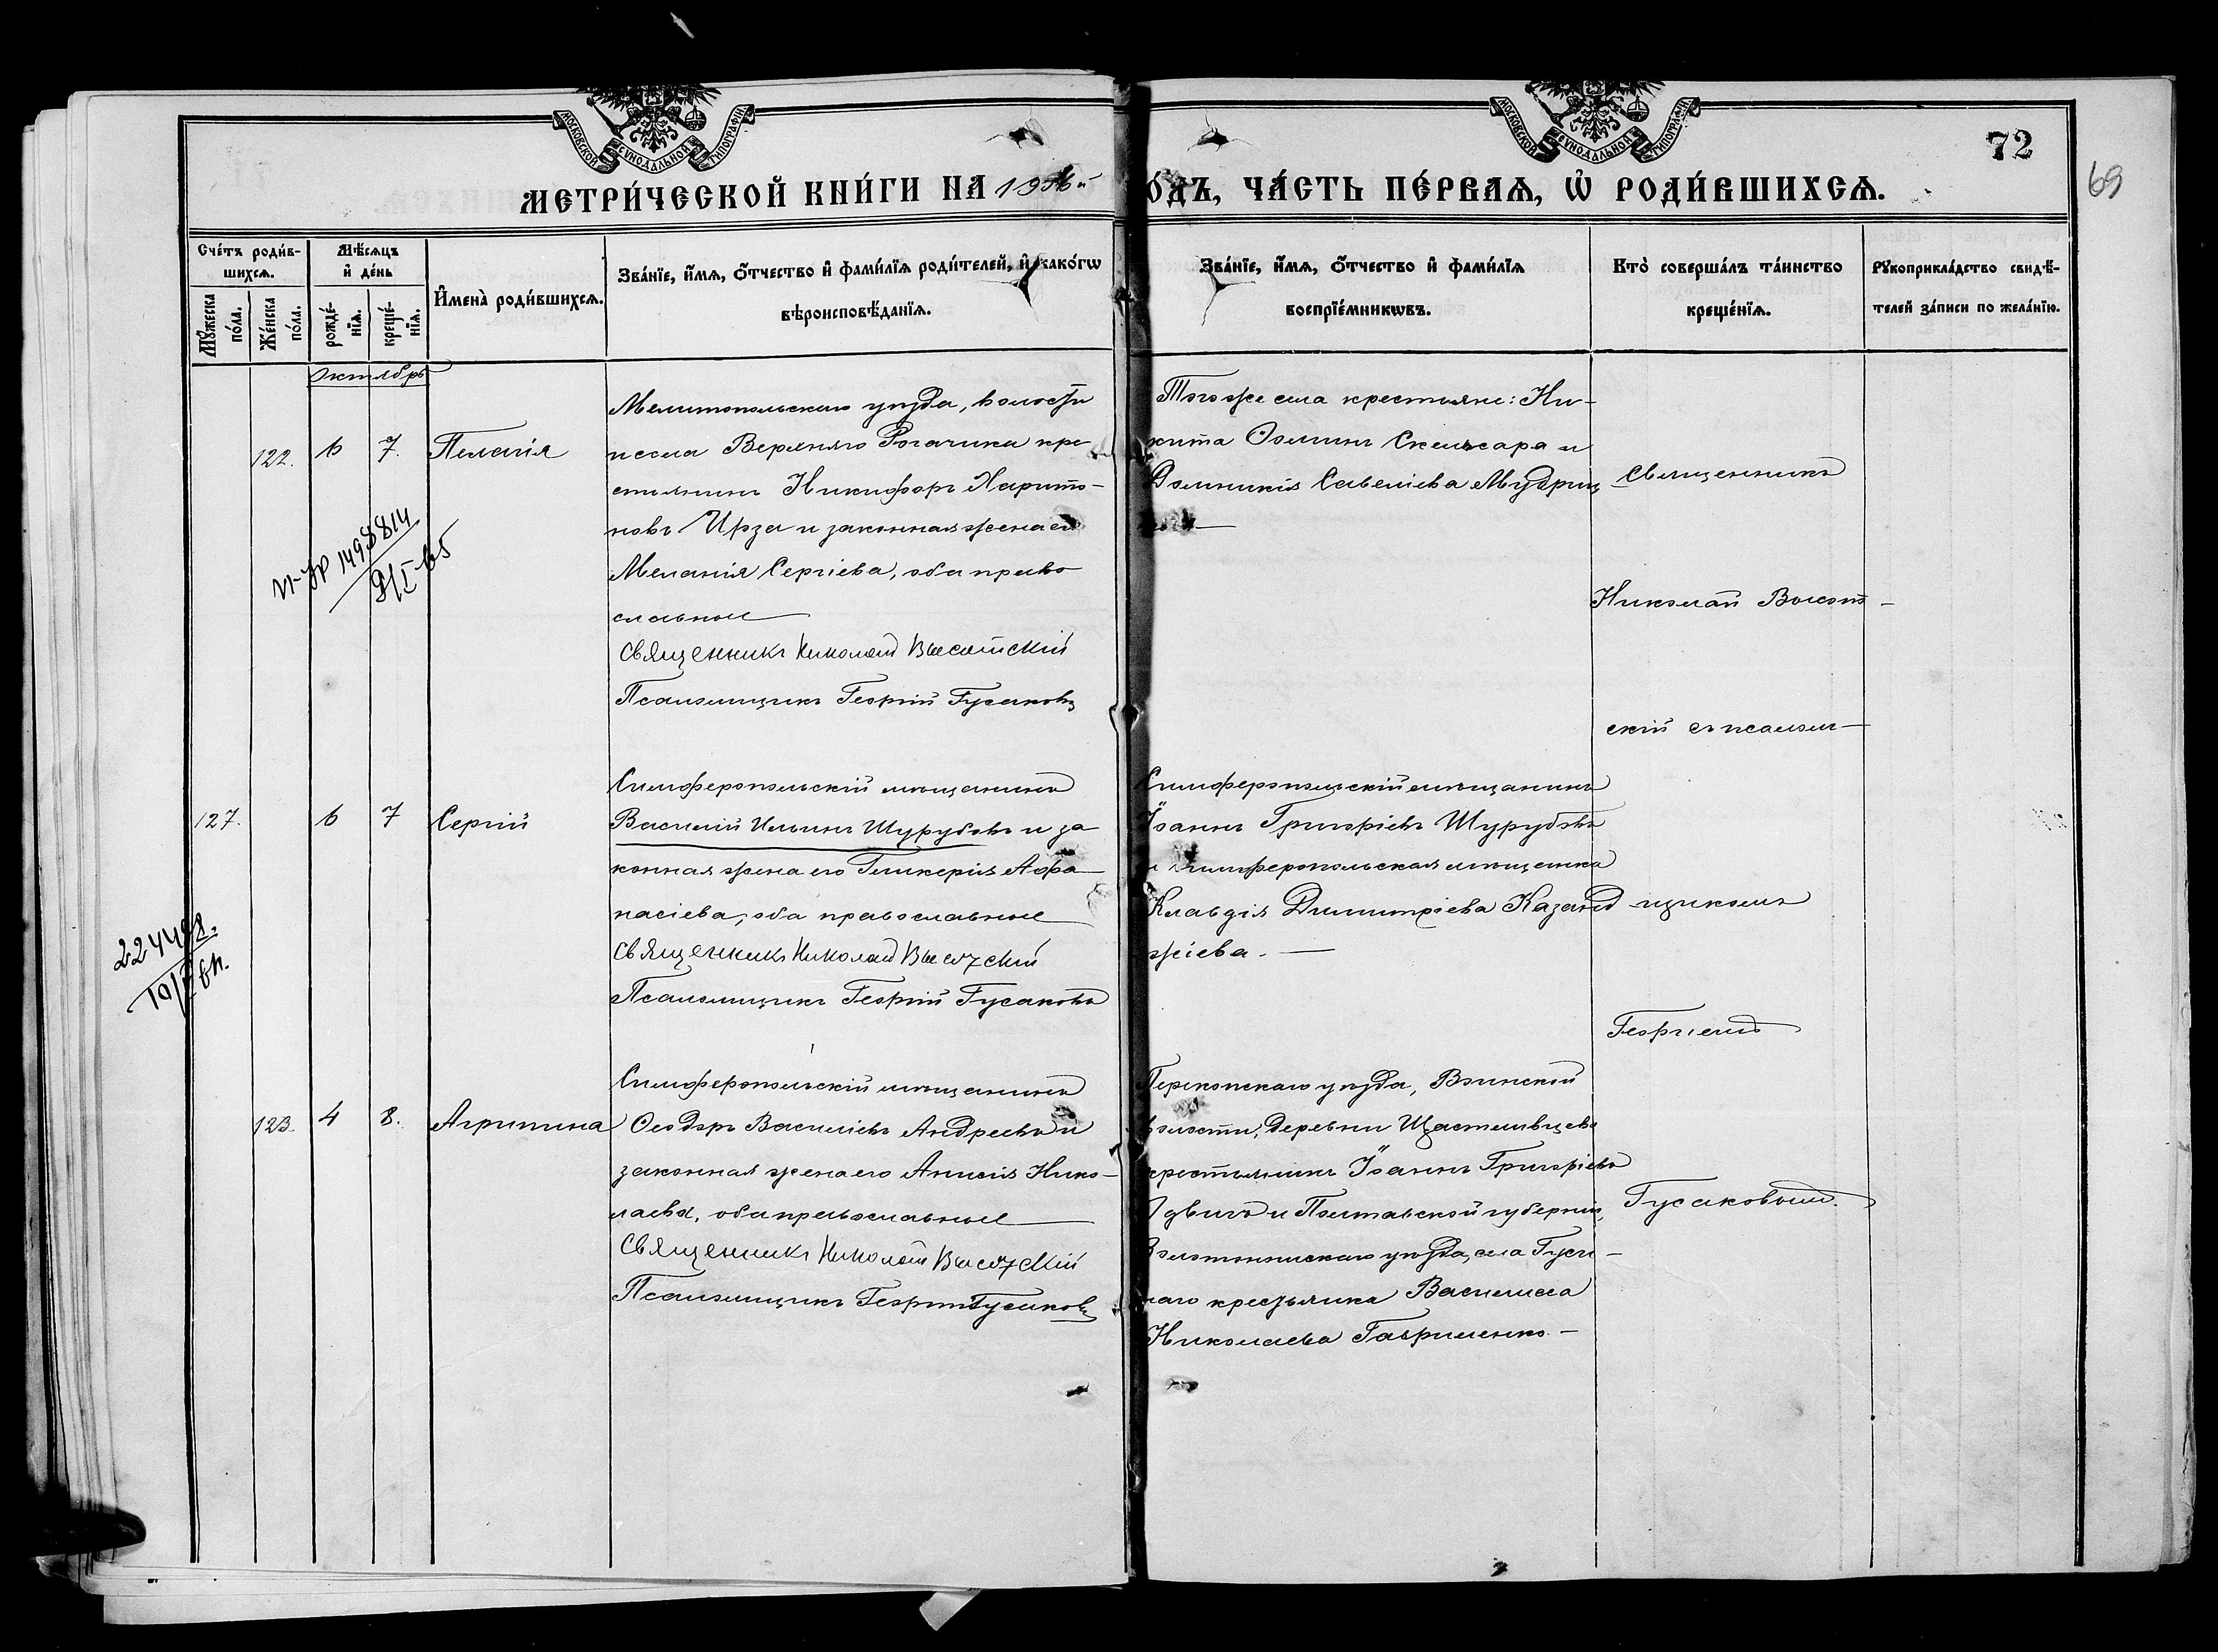 МОСКОВСКОЙ СѴНОДАЛЬНОЙ ТИПОГРАФІИ
МОСКОВСКОЙ СѴНОДАЛЬНОЙ ТИПОГРАФІИ
72
69
МЕТРИ́ЧЕСКОЙ КНИ́ГИ НА 19
О́ДЪ, ЧА́СТЬ ПЕ́РВАѦ, Ѡ РОДИ́ВШИХСѦ.
Сче́тъ роди́в-
шихсѧ.
Мꙋ́жеска по́ла.
Же́нска по́ла.
Мѣ́сѧцъ
и҆ де́нь
рожде́-нїѧ.
креще́-нїѧ.
И҆мена̀ роди́вшихсѧ.
Зва́нїе, и҆́мѧ, ѻ҆́тчество и҆ фами́лїѧ роди́телей, и҆ како́гѡ
вѣроисповѣ́данїѧ.
Зва́нїе, и҆́мѧ, ѻ҆́тчество и҆ фами́лїѧ
воспрїе́мникѡвъ.
Кто̀ соверша́лъ та́инство
креще́нїѧ.
Рꙋкоприкла́дство свидѣ́-
телей за́писи по жела́нїю.
Октябрь
122. 6 7. Пелагія
Мелитопольскаго уѣзда, волости
и села Верхняго Рогачика кре
стьянинъ Никифоръ Харито-
новъ Ирза и законная жена его
Меланія Сергіева, оба право
славные
Священникъ Николай Высотскій
Псаломщикъ Георгій Гусаковъ
Тогоже села крестьяне: Ни-
кита Ѳоминъ Скелсара и
Домникія Савеліева Мудриц
127. 6 7 Сергій
Симферопольскій мѣщанинъ
Василій Ильинъ Шурубовъ и за
конная жена его Гликерія Афа-
насіева, оба православные
Священникъ Николай Высотскій
Псаломщикъ Георгій Гусаковъ
Симферопольскій мѣщанинъ
Іоаннъ Григоріевъ Шурубовъ
и Симферопольская мѣщанка
Клавдія Димитріева Казанд
жіева.
224498.
123. 4 8. Агрипина
Симферопольскій мѣщанинъ
Ѳеодоръ Василіевъ Андреевъ и
законная жена его Анисія Нико-
лаева, оба православные
Священникъ Николай Высотскій
Псаломщикъ Георгій Гусаковъ
Перекопскаго уѣзда, Воинской
волости, деревни Щастливцева
крестьянинъ Іоаннъ Григоріевъ
и Полтавской губерніи,
Золотоношскаго уѣзда, села Гуси-
наго крестьянка Василисса
Николаева Гавриленко.
Священникъ
Николай Высот-
скій съ псалом-
щикомъ
Георгіемъ
Гусаковымъ.